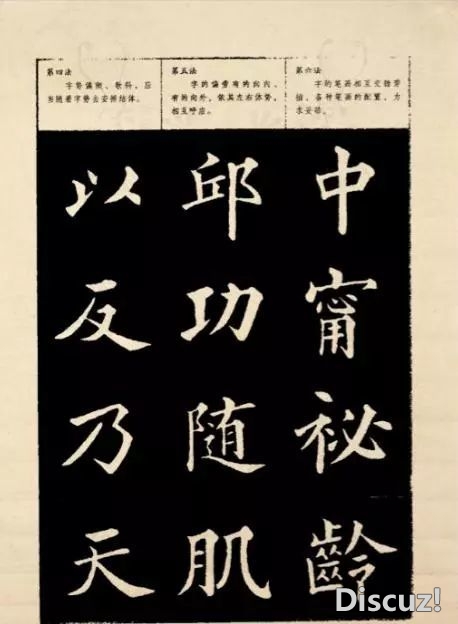 第四法
字势偏侧、欹斜,应
当随着字势去安排结体。
以
反
乃
天
第五法
字的偏旁有的向内,
有的向外,依其左右体势,
相互呼应。
邱
功
随
肌
第六法
字的笔画相互交错穿
插、各种笔画的配置,力
求妥帖。
中
甯
祕
齡
Discuz!